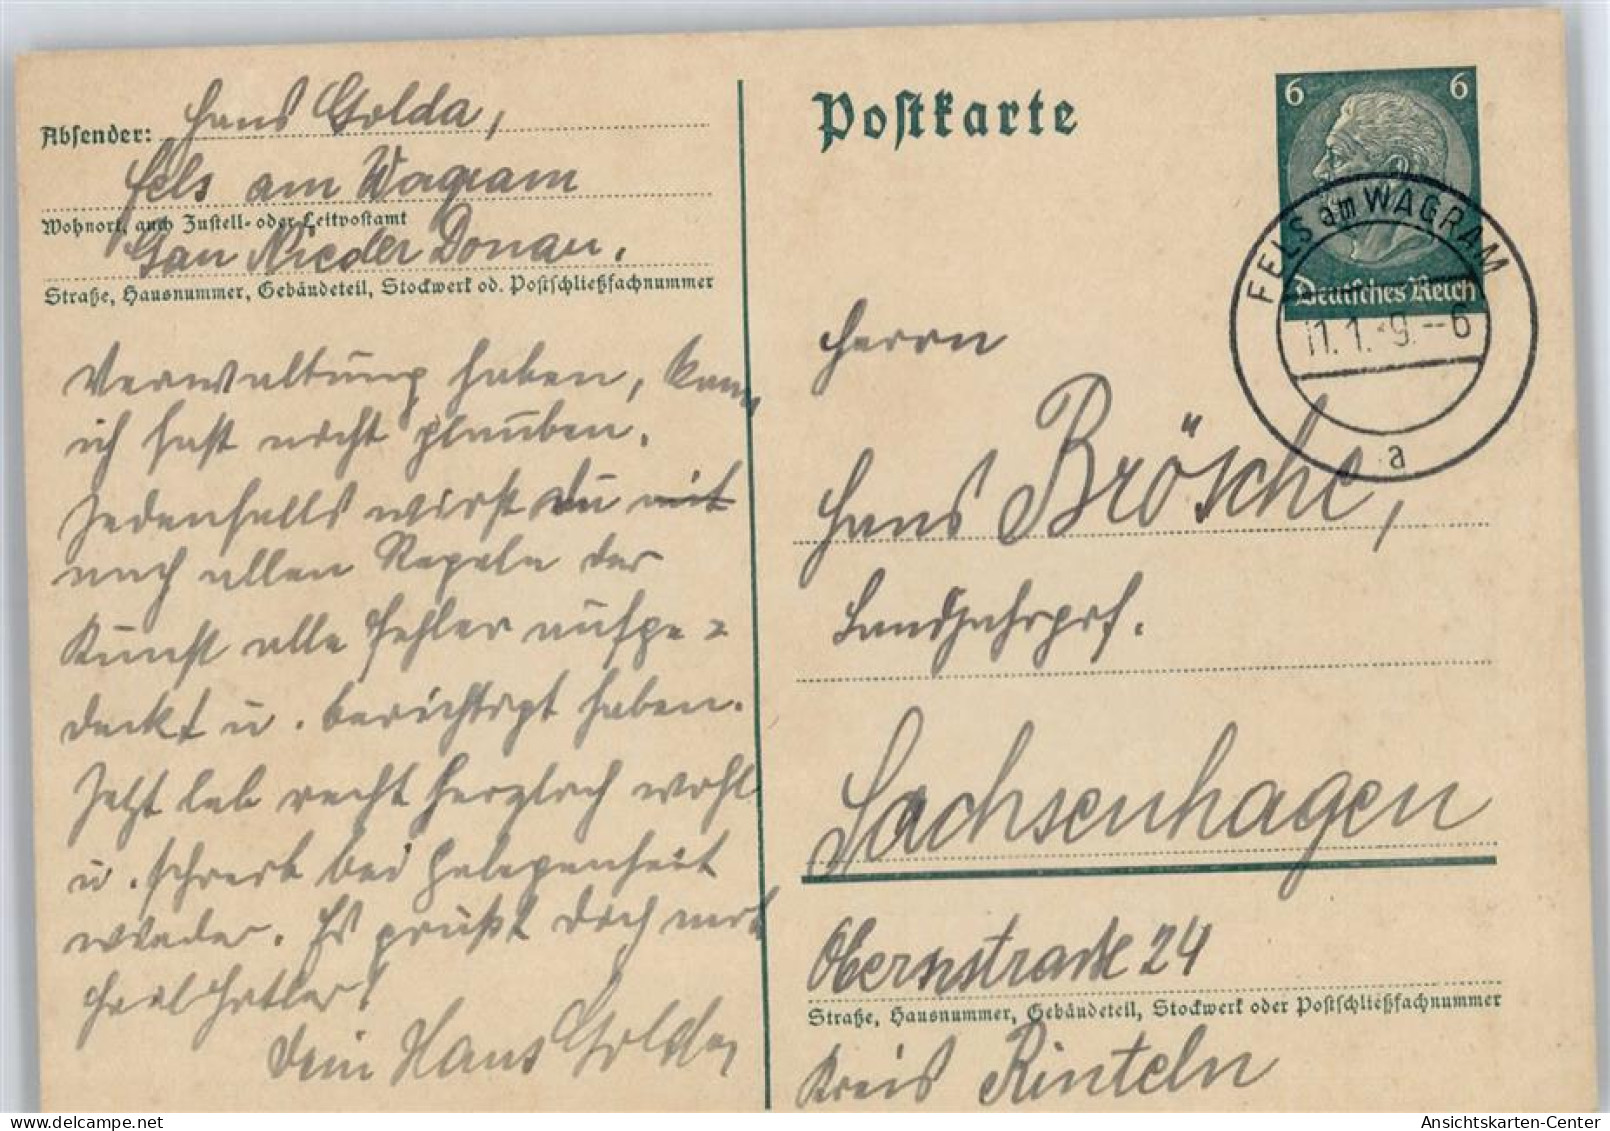 Absender: Hans Golda,
Fels am Wagram
Wohnort, auch Zustell- oder Leitpostamt
Gau Nieder Donau.
Straße, Hausnummer, Gebäudeteil, Stockwerk od. Postschließfachnummer
Verwaltung haben, kann
ich fast nicht glauben.
Jedenfalls wirst du mit
nach allen Regeln der
Kunst alle Fehler aufge-
deckt u. berichtigt haben.
Jetzt leb recht herzlich wohl
u. schreib bei Gelegenheit
wieder. Es grüßt dich mit
Heil Hitler!
Dein Hans Golda
Postkarte
6 6
Deutsches Reich
FELS am WAGRAM
11.1.39.--6
a
Herrn
Hans Brösche,
Landjahrgrf.
Sachsenhagen
24
Straße, Hausnummer, Gebäudeteil, Stockwerk oder Postschließfachnummer
Kreis Rinteln
Ansichtskarten-Center